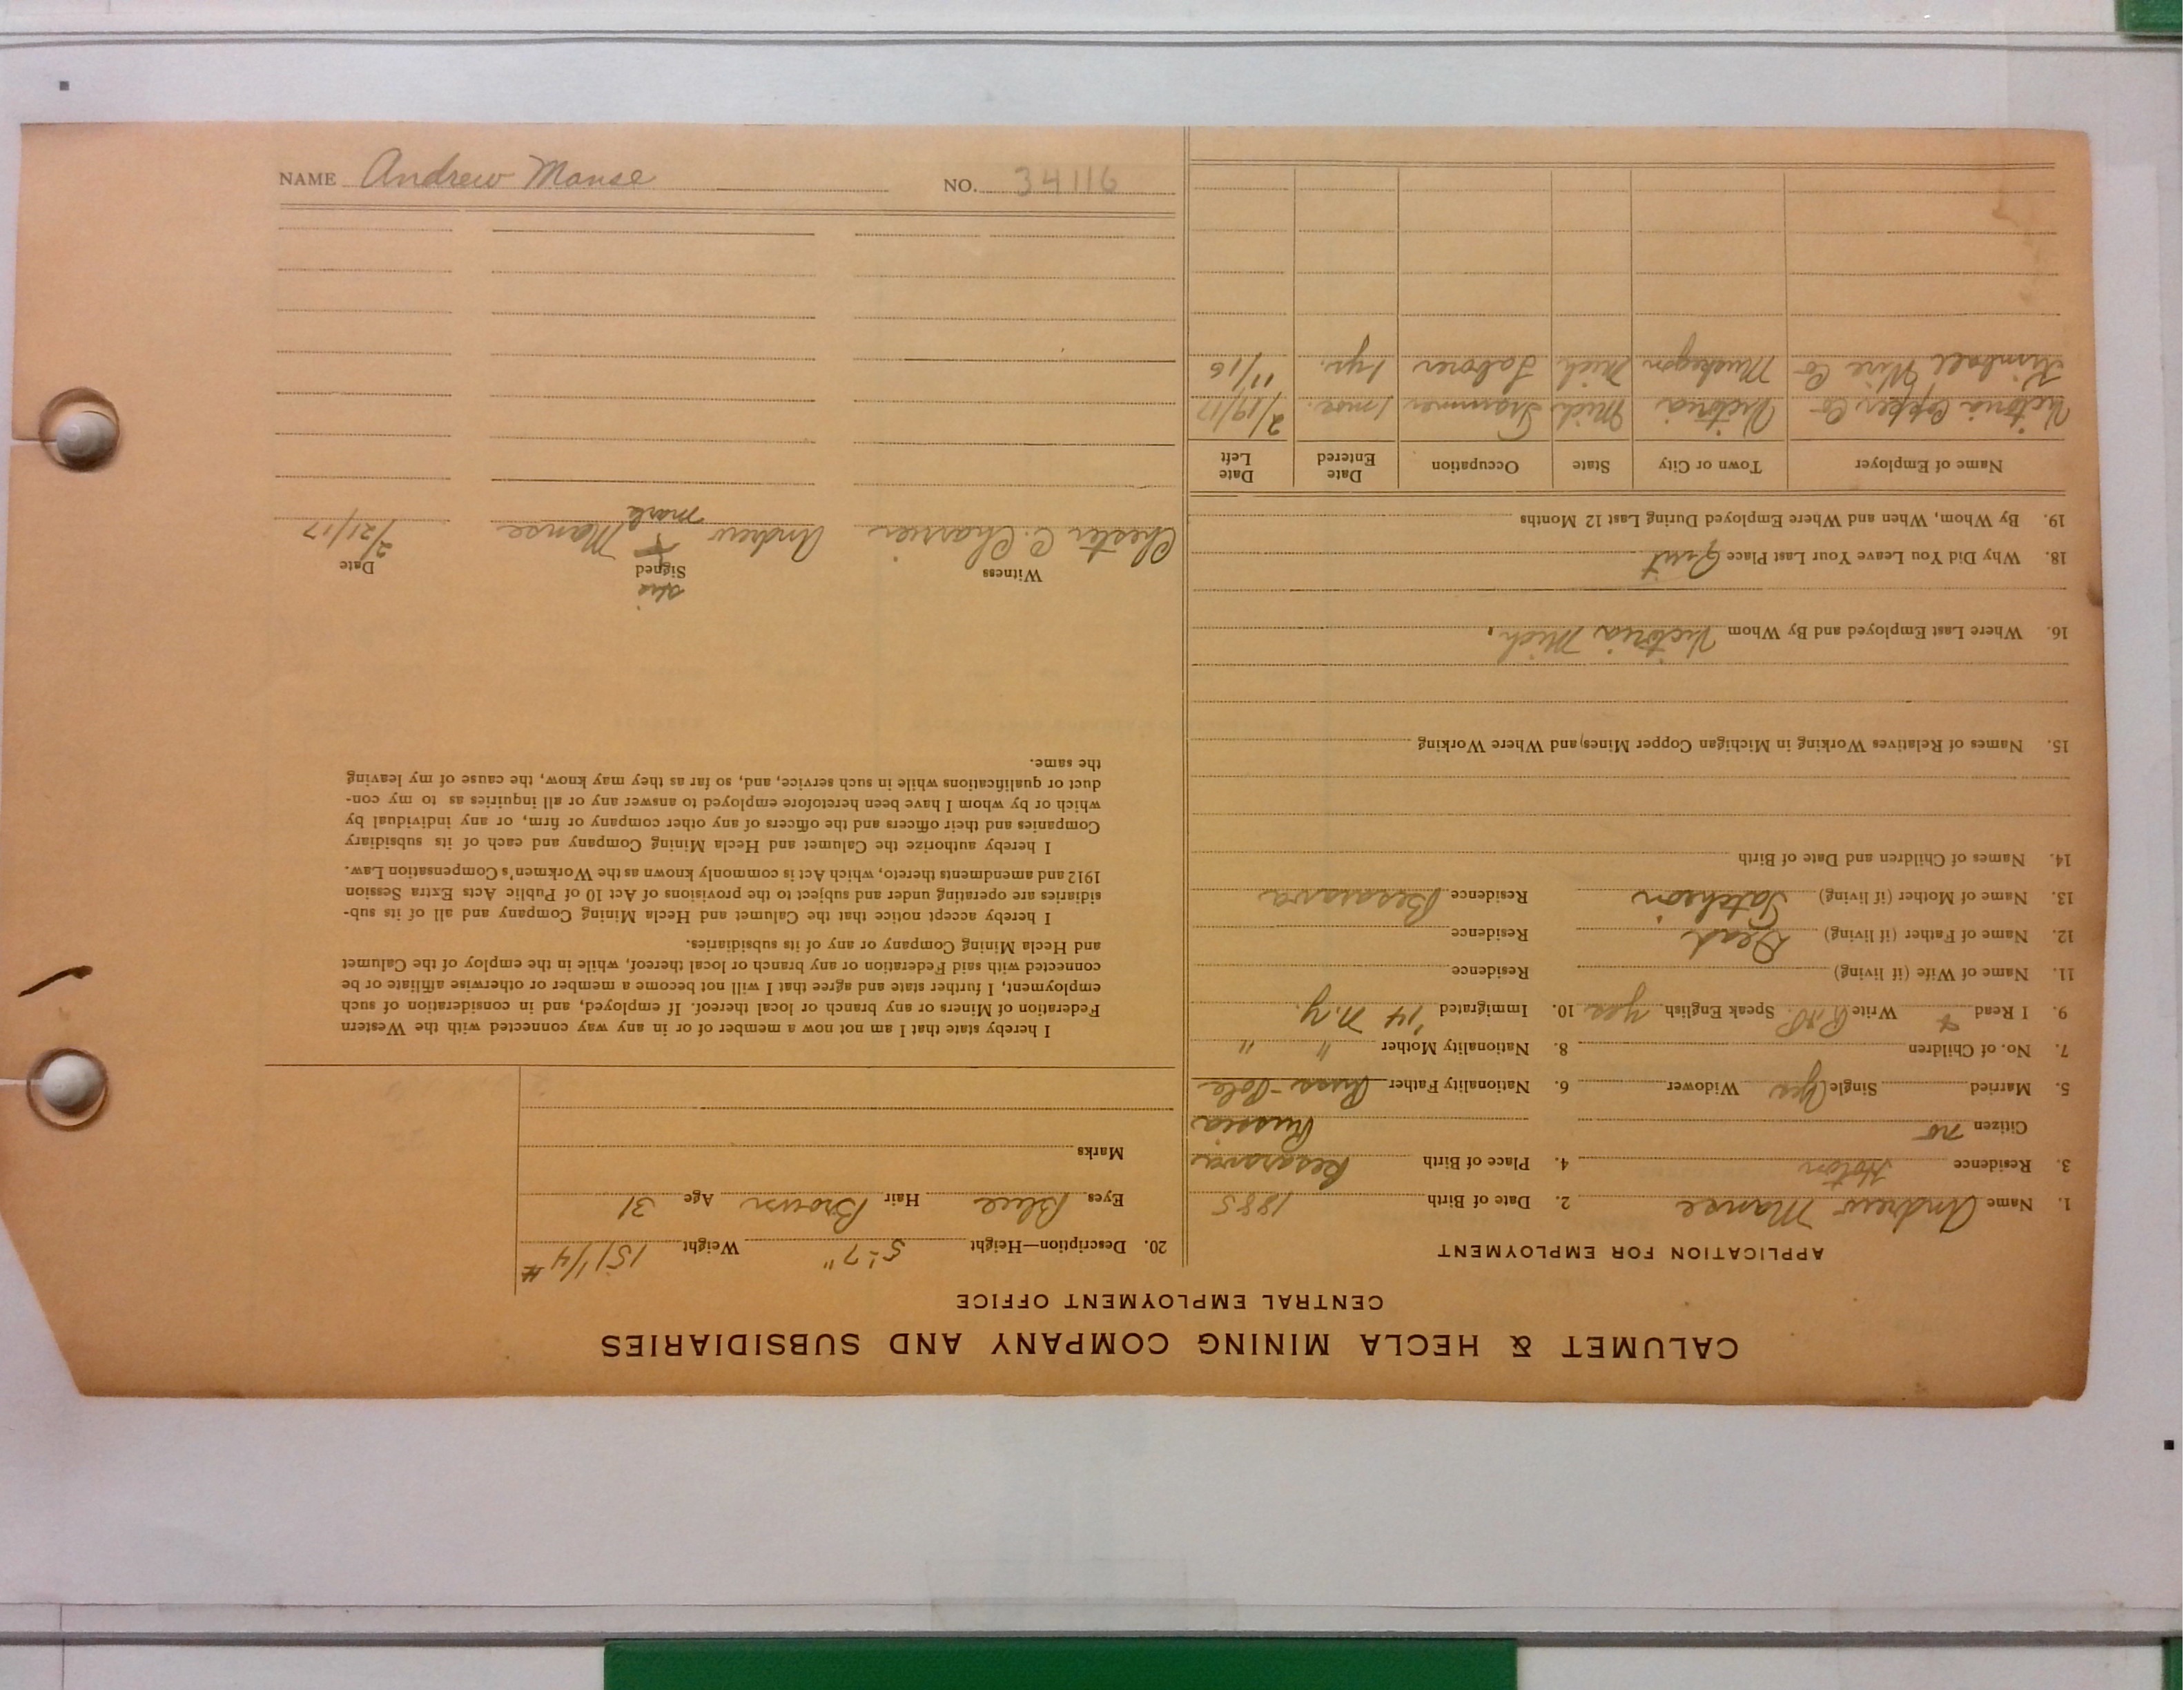 CALUMET & HECLA MINING COMPANY AND SUBSIDIARIES
CENTRAL EMPLOYMENT OFFICE
APPLICATION FOR EMPLOYMENT
1. Name Andrew Manse 2. Date of Birth 1885
3. Residence 4. Place of Birth Besarava
Citizen no Russia
5. Married Single yes Widower 6. Nationality Father Russ-Pole
7. No. of Children 8. Nationality Mother " "
9. I Read Write Speak English yes 10. Immigrated '14 N.Y.
11. Name of Wife (if living) Residence
12. Name of Father (if living) Dead Residence
13. Name of Mother (if living) Residence Besarava
14. Names of Children and Date of Birth
15. Names of Relatives Working in Michigan Copper Mines, and Where Working
16. Where Last Employed and By Whom Victoria Mich.
18. Why Did You Leave Your Last Place Quit
19. By Whom, When and Where Employed During Last 12 Months
Name of Employer Town or City State Occupation Date Entered Date Left
Victoria Copper Co Victoria Mich Trammer 1 mo. 2/19/17
Kimball Wire Co Muskegon Mich Laborer 1 yr. 11/16
20. Description—Height 5-7" Weight 151 1/4 #
Eyes Blue Hair Brown Age 31
Marks
I hereby state that I am not now a member of or in any way connected with the Western
Federation of Miners or any branch or local thereof. If employed, and in consideration of such
employment, I further state and agree that I will not become a member or otherwise affiliate or be
connected with said Federation or any branch or local thereof, while in the employ of the Calumet
and Hecla Mining Company or any of its subsidiaries.
I hereby accept notice that the Calumet and Hecla Mining Company and all of its sub-
sidiaries are operating under and subject to the provisions of Act 10 of Public Acts Extra Session
1912 and amendments thereto, which Act is commonly known as the Workmen's Compensation Law.
I hereby authorize the Calumet and Hecla Mining Company and each of its subsidiary
Companies and their officers and the officers of any other company or firm, or any individual by
which or by whom I have been heretofore employed to answer any or all inquiries as to my con-
duct or qualifications while in such service, and, so far as they may know, the cause of my leaving
the same.
his
Witness Signed Date
Chester C. Charrier Andrew X Manse 2/21/17
mark
NAME Andrew Manse NO. 34116